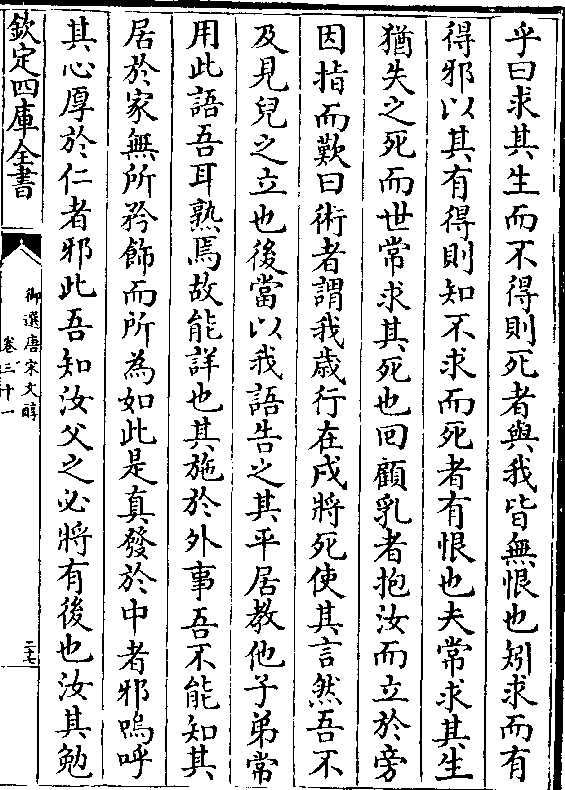 乎曰求其生而不得則死者與我皆無恨也矧求而有
得邪以其有得則知不求而死者有恨也夫常求其生
猶失之死而世常求其死也回顧乳者抱汝而立於旁
因指而歎曰術者謂我歳行在戌將死使其言然吾不
及見兒之立也後當以我語告之其平居教他子弟常
用此語吾耳熟焉故能詳也其施於外事吾不能知其
居於家無所矜飾而所為如此是真發於中者邪嗚呼
其心厚於仁者邪此吾知汝父之必將有後也汝其勉
欽定四庫全書
御選唐宋文醇
卷三十一
二七